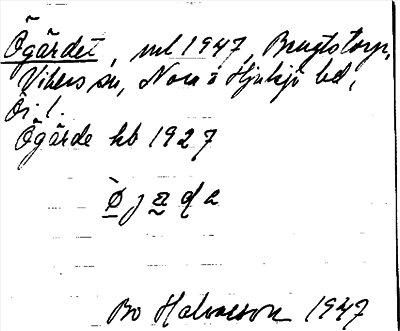 Ögärdet, ml 1947, Brugtstorp,
Vikers sn, Nora o Hjulsjö bd,
Ör. l.
Ögärde kb 1927
Bo Halvarson 1947